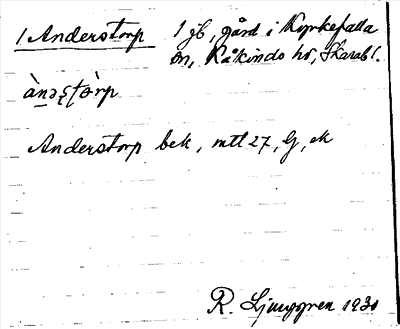 1 Anderstorp 1 gb, gård i Kyrkefalla
sn, Kåkinds hd, Skarab l.
Anderstorp bek, mtl 27, G, ek
R. Ljunggren 1931